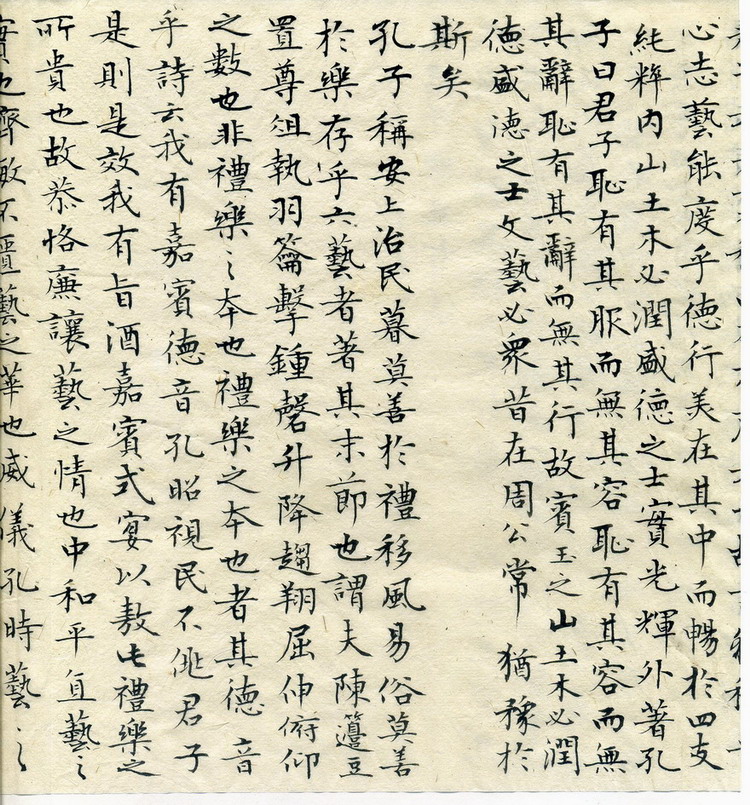 心志藝能度乎德行美在其中而暢於四支
純粹內山土木必潤盛德之士實光輝外著孔
子曰君子恥有其服而無其容恥有其容而無
其辭恥有其辭而無其行故賓玉之山土木必潤
德盛德之士文藝必衆昔在周公常猶豫於
斯矣
孔子稱安上治民暮莫善於禮移風易俗莫善
於樂存乎六藝者著其末節也謂夫陳籩豆
置尊俎執羽籥擊鍾磬升降趨翔屈伸俯仰
之數也非禮樂〻本也禮樂之本也者其德音
乎詩云我有嘉賓德音孔昭視民不佻君子
是則是效我有旨酒嘉賓式宴以敖此禮樂之
所貴也故恭恪廉讓藝之情也中和平直藝〻
實也齊敏不匱藝之華也威儀孔時藝〻